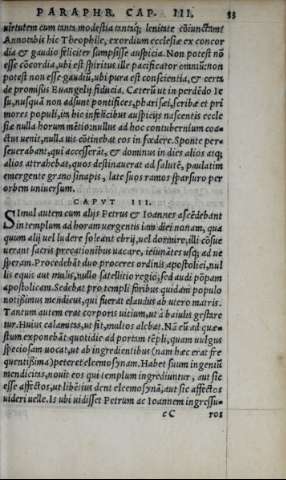 PARAPHR. CAP. III. 33
uirtutem cum tanta modestia tantaq; lenitate cōiunctam?
Annotabis hic Theophile, exordium ecclesiæ ex concor
dia & gaudio feliciter sumpsisse auspicia. Non potest nō
esse cōcordia, ubi est spiritus ille pacificator omniū: non
potest non esse gaudiū, ubi pura est conscientia, & certa
de promissis Euangelij fiducia. Cæterū ut in perdēdo Ie
su, nusquā non adsunt pontifices, pharisæi, scribæ et pri
mores populi, in hic infelicibus auspicijs nascentis eccle
siæ nulla horum mētio: nullus ad hoc contubernium coa-
ctus uenit, nulla uis cōtinebat eos in fœdere. Sponte per-
seuerabant, qui accesserāt, & dominus in dies alios atq;
alios attrahebat, quos destinauerat ad salutē, paulatim
emergente grano sinapis, late suos ramos sparsuro per
orbem uniuersum.
CAPVT III.
SImul autem cum alijs Petrus & Ioannes ascēdebant
in templum ad horam uergentis iam diei nonam, qua
quum alij uel ludere soleant ebrij, uel dormire, illi cōsue
uerant sacris precationibus uacare, ieiunātes usq; ad ue
speram. Procedebāt duo proceres ordinis apostolici, nul
lis equis aut mulis, nullo satellitio regio, sed audi pōpam
apostolicam. Sedebat pro templi foribus quidam populo
notissimus mendicus, qui fuerat claudus ab utero matris.
Tantum autem erat corporis uitium, ut à baiulis gestare
tur. Huius calamitas, ut fit, multos alebat. Nā eū ad quæ-
stum exponebāt quotidie ad portam tēpli, quam uulgus
speciosam uocat, ut ab ingredientibus (nam hæc erat fre
quentissima) peteret eleemosynam. Habet suum ingeniū
mendicitas, nouit eos qui templum ingrediuntur, aut sic
esse affectos, ut libēter dent eleemosynā, aut sic affectos
uideri uelle. Is ubi uidisset Petrum ac Ioannem ingressu-
cC ros